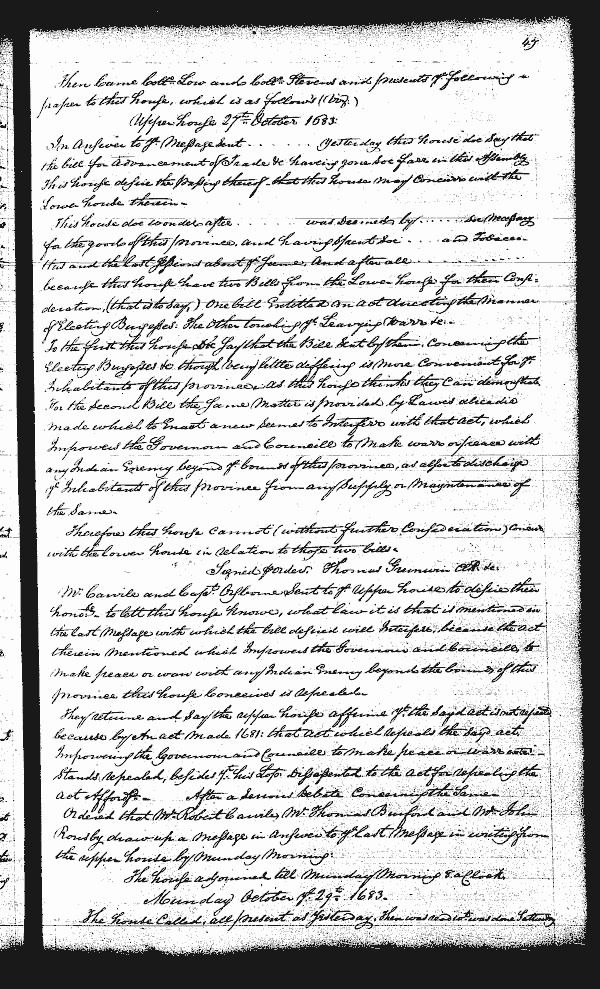 49
Then Came Coll.o Low and Coll.o Stevens and presents ye following
paper to this house, which is as follows (viz.)
Upper house 27th October 1683
In Answer to ye Message sent . . . . . . . Yesterday this house doe Say that
the bill for Advancement of Trade &c having gone Soe farr in this Assembly
This house desire the passing thereof that this house may Concurr with the
Lower house therein
This house doe wonder after . . . . . . . was Deemed by . . . . . . Necessary
for the good of this province, and having Spent Soe . . . . and Tobacco
this and the last Sessions about ye Same, And after all . . . . . . . .
because this house have two Bills from the Lower house for their Consi-
deration, (that is to say,) One bill Entitled An act directing the Manner
of Electing Burgesses. The Other touching ye Leavying Warr &c
To the first this house Doe Say that the Bill Sent by them, concerning the
Electing Burgesses &c though being little differing is More Convenient for ye
Inhabitants of this province As this house thinks they Can demonstrate
For the Second Bill the Same Matter is provided by Lawes already
made which to Enact anew Seemes to Interfere with that Act, which
Impowers the Governour and Councill to Make warr or peace with
any Indian Enemy beyond ye bounds of this province, as also to discharge
ye Inhabitants of this Province from any Supply or Mayntenance of
the Same
Therefore this house Cannot (without further Consideration) Concurr
with the Lower house in relation to those two bills
Signed p order Thomas Grunwin
Mr Carvile and Capt Osborne Sent to ye Upper house to desire their
honors to lett this house Know, what law it is that is mentioned in
the last Message with which the bill desired will Interfere, because the act
therein Mentioned which Impowers the Governour and Councill to
Make peace or warr with any Indian Enemy beyond the bounds of this
province this house Conceives is repealed
They returne and Say the upper house affirme yt the Sayd Act is not repealed
because by An Act Made 1681: that Act which repeals the Sayd act
Impowering the Governour and Councill to make peace or Warr
Stands repealed, besides yt his Lopp Dissented to the Act for repealing the
Act Afforesd After a Serious Debate Concerning the Same
Ordered that Mr Robert Carvile, Mr Thomas Burford and Mr John
Rousby draw up a Message in Answer to ye last Message in writing from
the upper house by Munday Morning.
The house adjourned till Munday Morning 8 a Clock.
Munday October ye 29th 1683.
The house Called, all present as Yesterday, Then was read wt was done Satturday